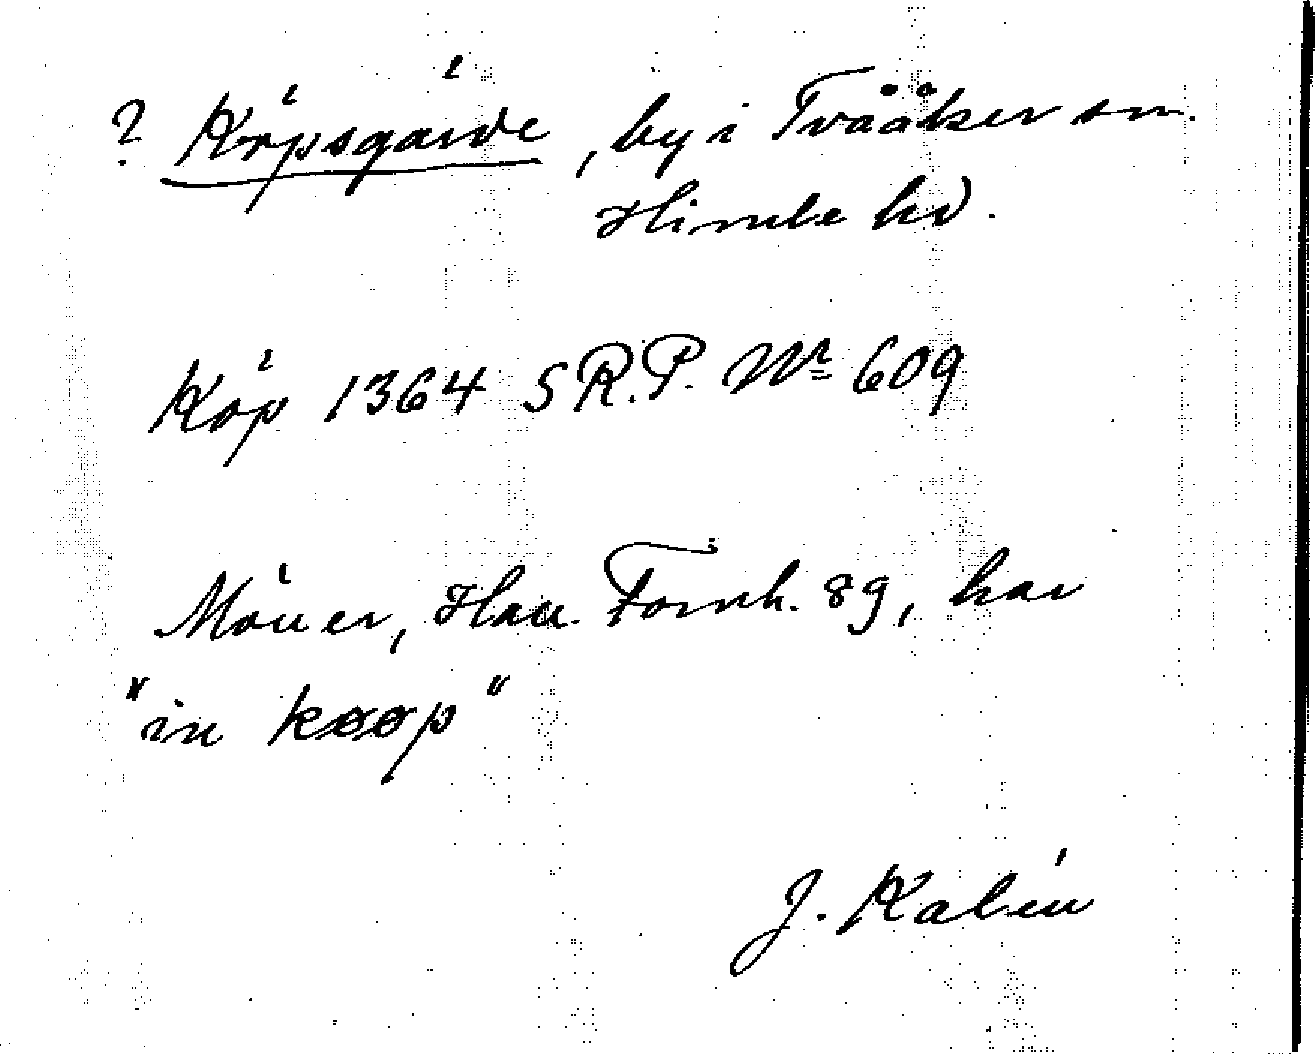 ? Köpsgårde, by i Tvååker sn.
Himle hd.
Köp 1364 SR.P. Nr 609
Möller, Hall. Fornh. 89, har
"in køøp"
J. Kalén